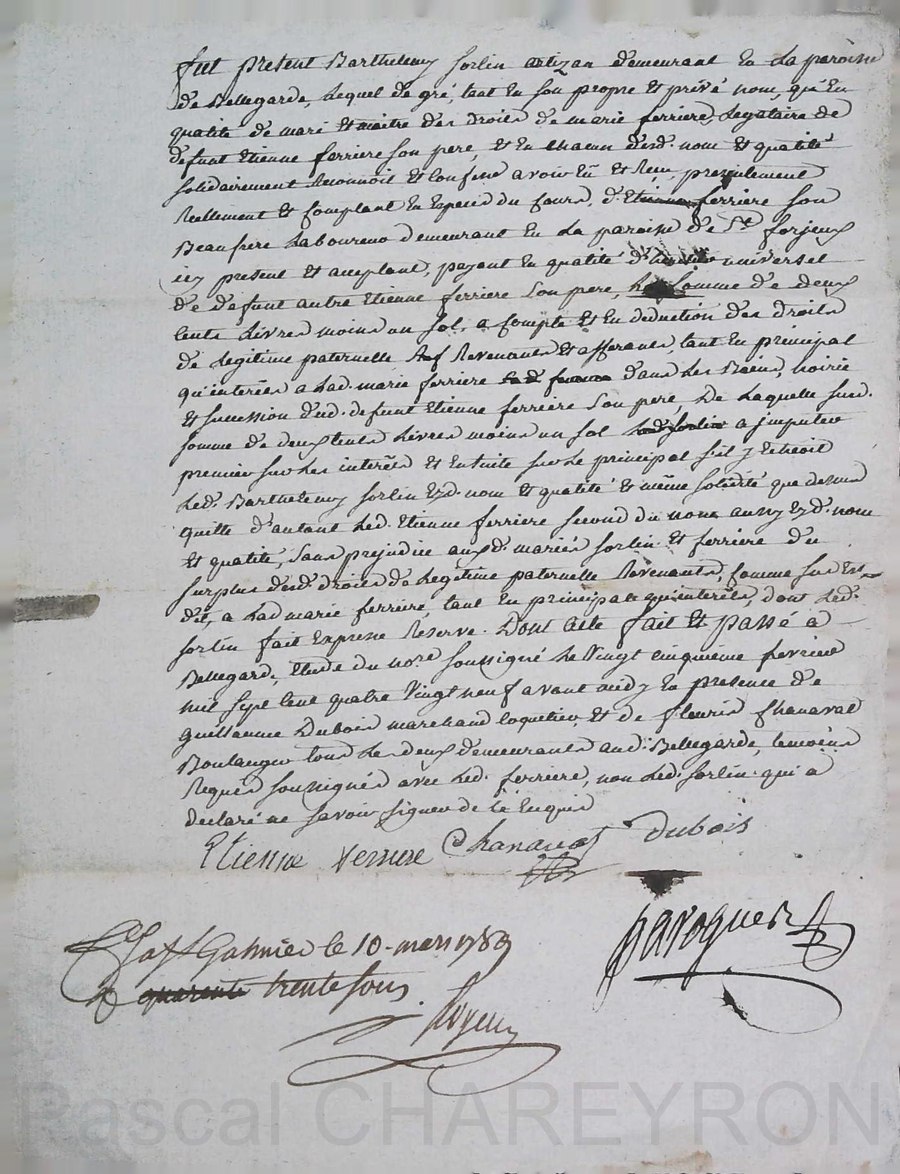 fut present Barthelemy sorlin artizan demeurant en La paroisse
de Bellegarde, Lequel de gré, tant en son propre et privé nom, qu'en
qualité de mari et maitre des droits de marie ferriere, Legataire de
defunt Etienne ferriere son pere, et en chacun desd. nom et qualité
solidairement Reconnoit et confesse avoir Eû et Reçu presentement
Reellement et comptant en Especes du cours, d'Etienne ferriere son
Beaufrere Laboureur demeurant en La paroisse de St. forjeux
icy present et acceptant, payant en qualité d' universel
de defunt autre Etienne ferriere son pere, La somme de deux
cents Livres moins un sol, a compte et en deduction des droits
de Legitime paternelle Revenants et afferants, tant en principal
qu'interêts a Lad. marie ferriere dans Les Biens, hoirie
et succession dud. defunt Etienne ferriere son pere, De Laquelle susd.
somme de deux cents Livres moins un sol Led. sorlin a imputer
premier sur Les interêts et ensuite sur Le principal s'il y Echeoit
Led. Barthelemy sorlin Esd. nom et qualité et même solidité que dessus
quitte d'autant Led. Etienne ferriere second du nom aussy Esd. nom
et qualité, sans prejudice auxd. mariés sorlin et ferriere du
surplus desd. droits de Legitime paternelle Revenants, comme sus Est
dit, a Lad. marie ferriere, tant en principal qu'interêts, dont Led.
sorlin fait Expresse Reserve. Dont acte fait et passé à
Bellegarde, Etude du nore soussigné Le vingt cinquieme fevrier
mil sept cent quatre vingt neuf avant midy en presence de
Guillaume Dubois marchand coquetier, et de fleuris Chanaval
Boulanger tous Les deux demeurants aud. Bellegarde, temoins
Requis soussignés avec Led. ferriere, non Led. sorlin qui a
declaré ne savoir signer de ce Enquis
Etienne ferriere Chanaval Dubois
le 10 mars 1789
quarente trente sous